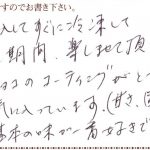 すのでお書き下さい。
入してすぐに冷凍して
期間、楽しませて頂
ョコのコーティングがと
気に入っています。(甘さ、固
基本の味が一番好きで